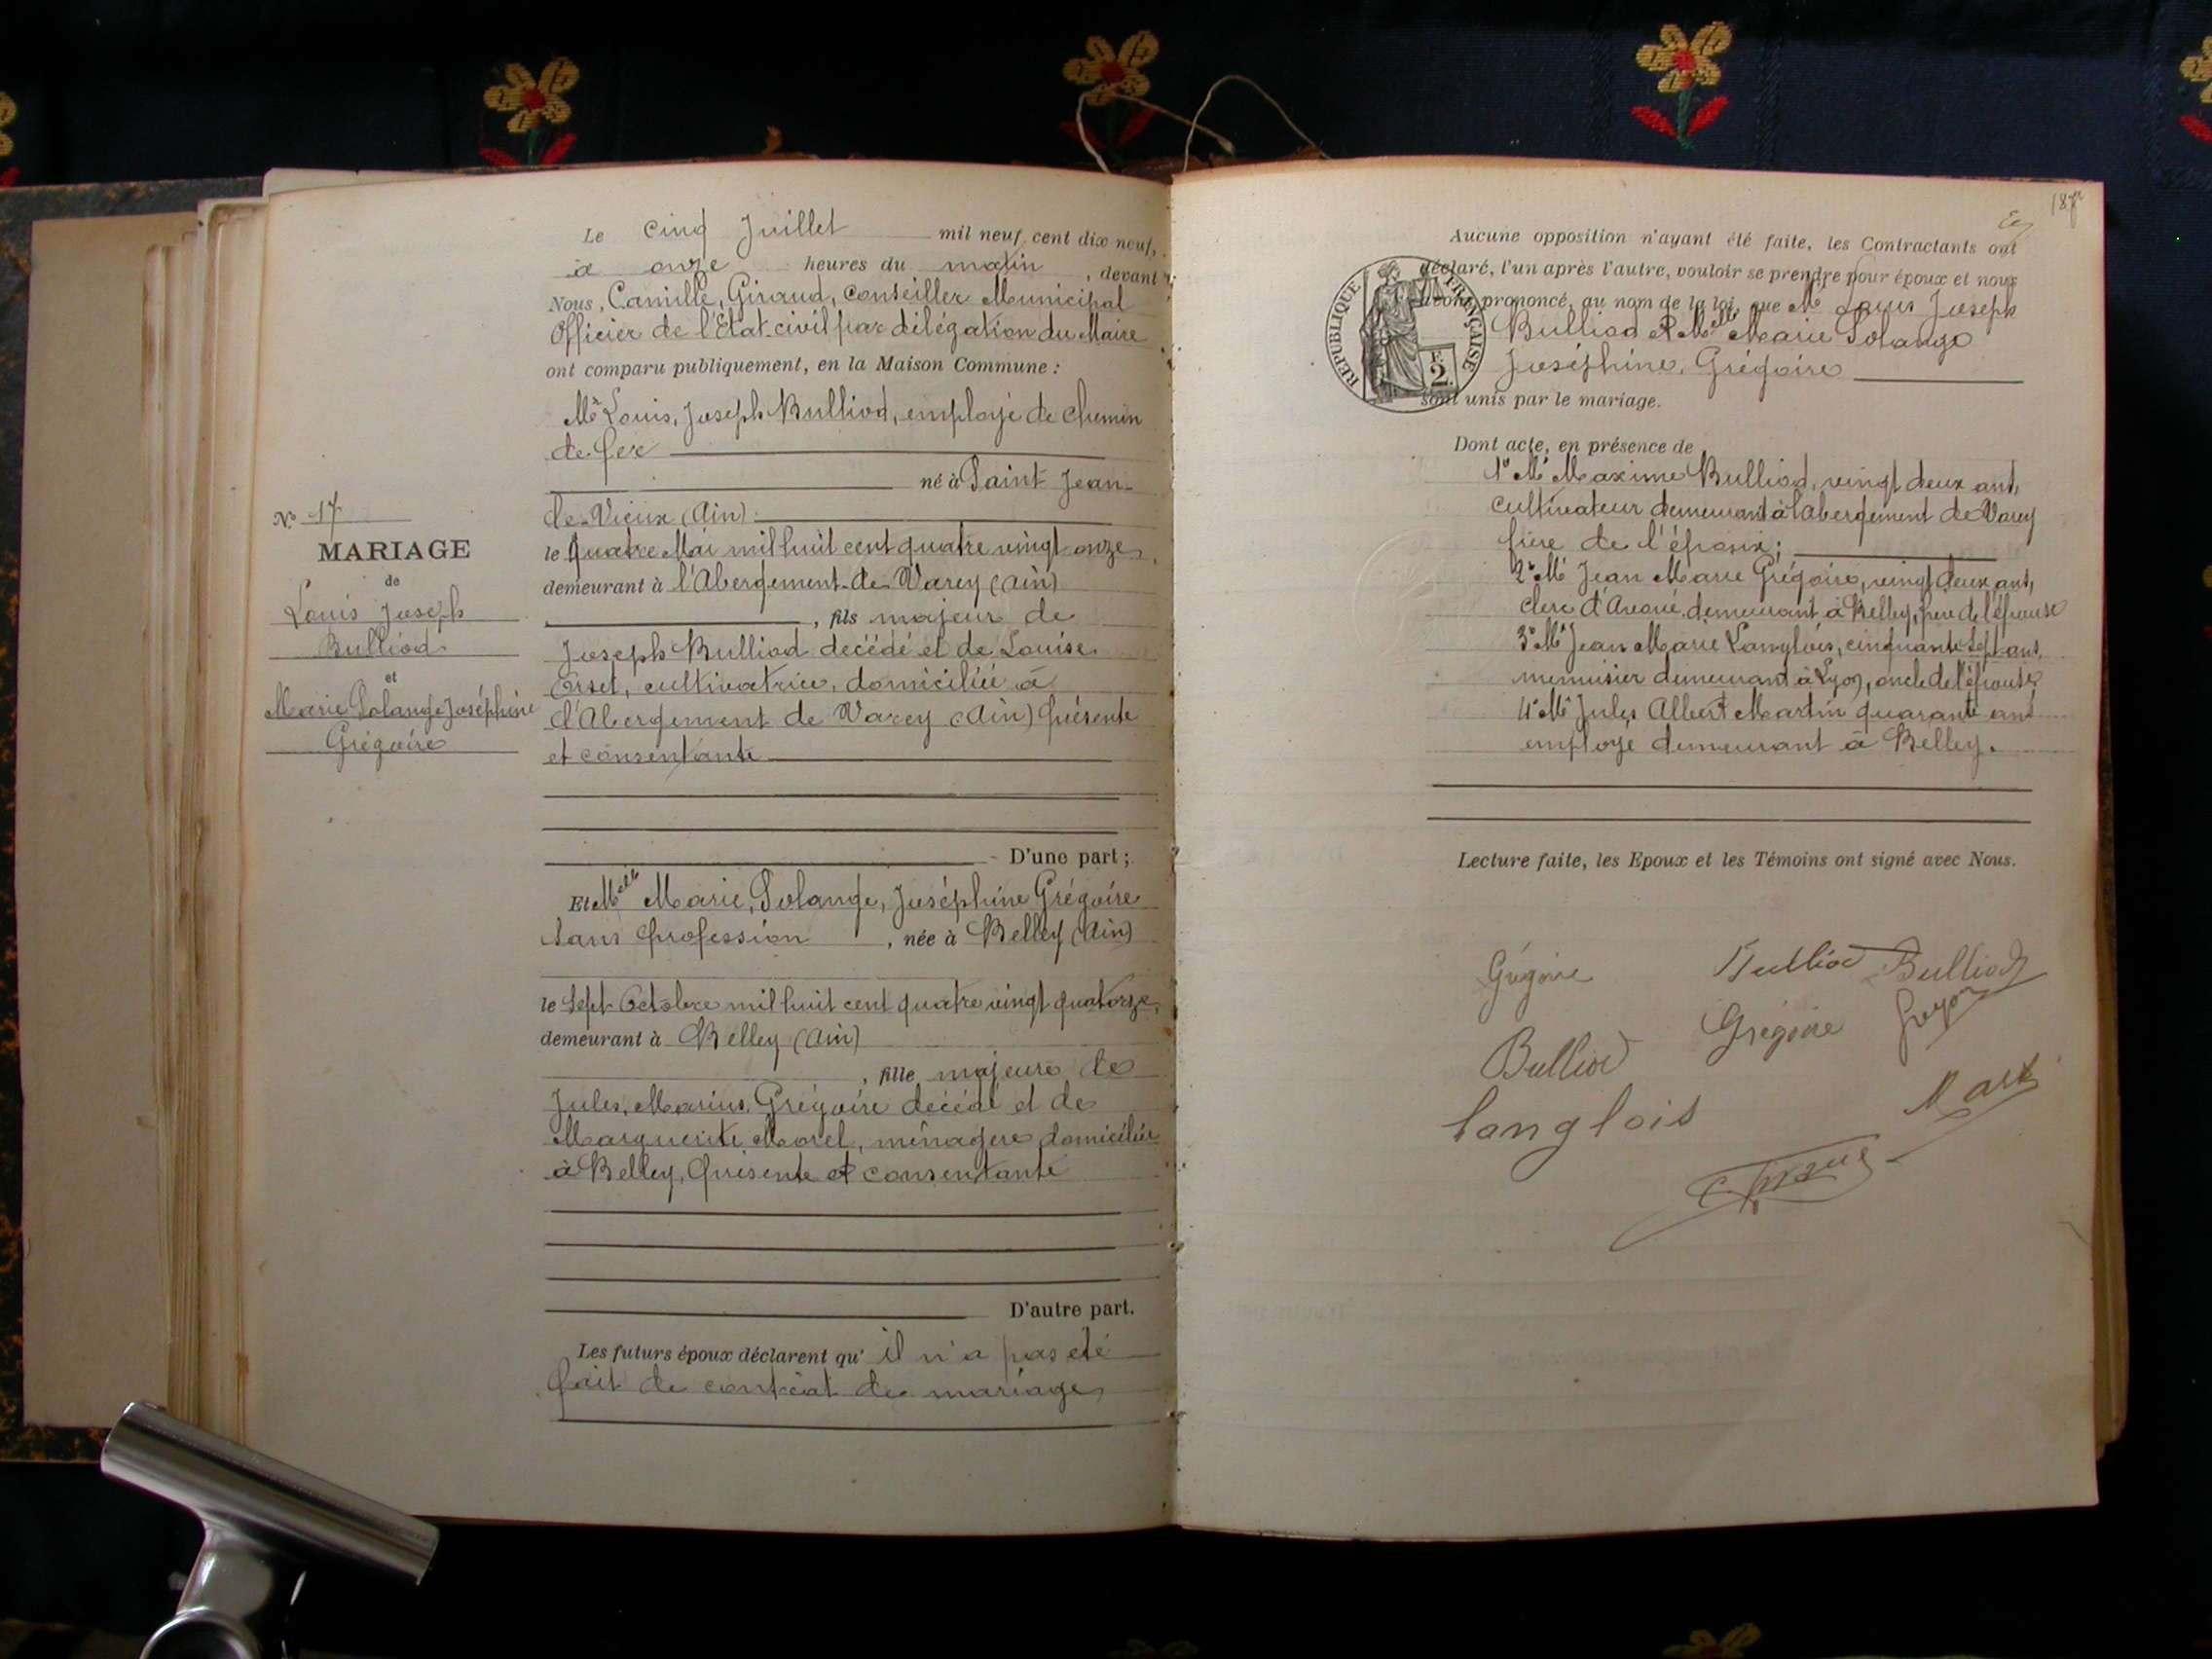 Le cinq Juillet mil neuf cent dix neuf,
à onze heures du matin, devant
Nous, Camille, Giraud, Conseiller Municipal
Officier de l'Etat-civil par délégation du Maire
ont comparu publiquement, en la Maison Commune :
Mr Louis, Joseph Bulliod, employé de chemin
de fer
né à Saint Jean-
le-Vieux (Ain)
le Quatre Mai mil huit cent quatre vingt onze,
demeurant à l'Abergement-de-Varey (Ain)
, fils majeur de
Joseph Bulliod décédé et de Louise
Orset, cultivatrice, domiciliée à
l'Abergement de Varey (Ain) présente
et consentante
D'une part ;
Et Melle Marie, Solange, Joséphine Grégoire
sans profession, née à Belley (Ain)
le sept Octobre mil huit cent quatre vingt quatorze,
demeurant à Belley (Ain)
, fille majeure de
Jules, Marius, Grégoire décédé et de
Marguerite Morel, ménagère domiciliée
à Belley, présente et consentante
D'autre part.
Les futurs époux déclarent qu' il n'a pas été
fait de contrat de mariage
No 17
MARIAGE
de
Louis Joseph
Bulliod
et
Marie Solange Joséphine
Grégoire
187
Aucune opposition n'ayant été faite, les Contractants ont
déclaré, l'un après l'autre, vouloir se prendre pour époux et nous
avons prononcé, au nom de la loi, que Mr Louis Joseph
Bulliod et Melle Marie Solange
Joséphine, Grégoire
sont unis par le mariage.
REPUBLIQUE FRANÇAISE
F.
2.
Dont acte, en présence de
1° Mr Maxime Bulliod, vingt deux ans,
cultivateur demeurant à l'abergement de Varey
frère de l'époux ;
2° Mr Jean Marie Grégoire, vingt deux ans,
clerc d'Avoué, demeurant à Belley, frère de l'épouse
3° Mr Jean Marie Langlois, cinquante sept ans,
menuisier demeurant à Lyon, oncle de l'épouse
4° Mr Jules Albert Martin quarante ans
employé demeurant à Belley.
Lecture faite, les Epoux et les Témoins ont signé avec Nous.
Grégoire Bulliod Bulliod
Bulliod Grégoire
Langlois